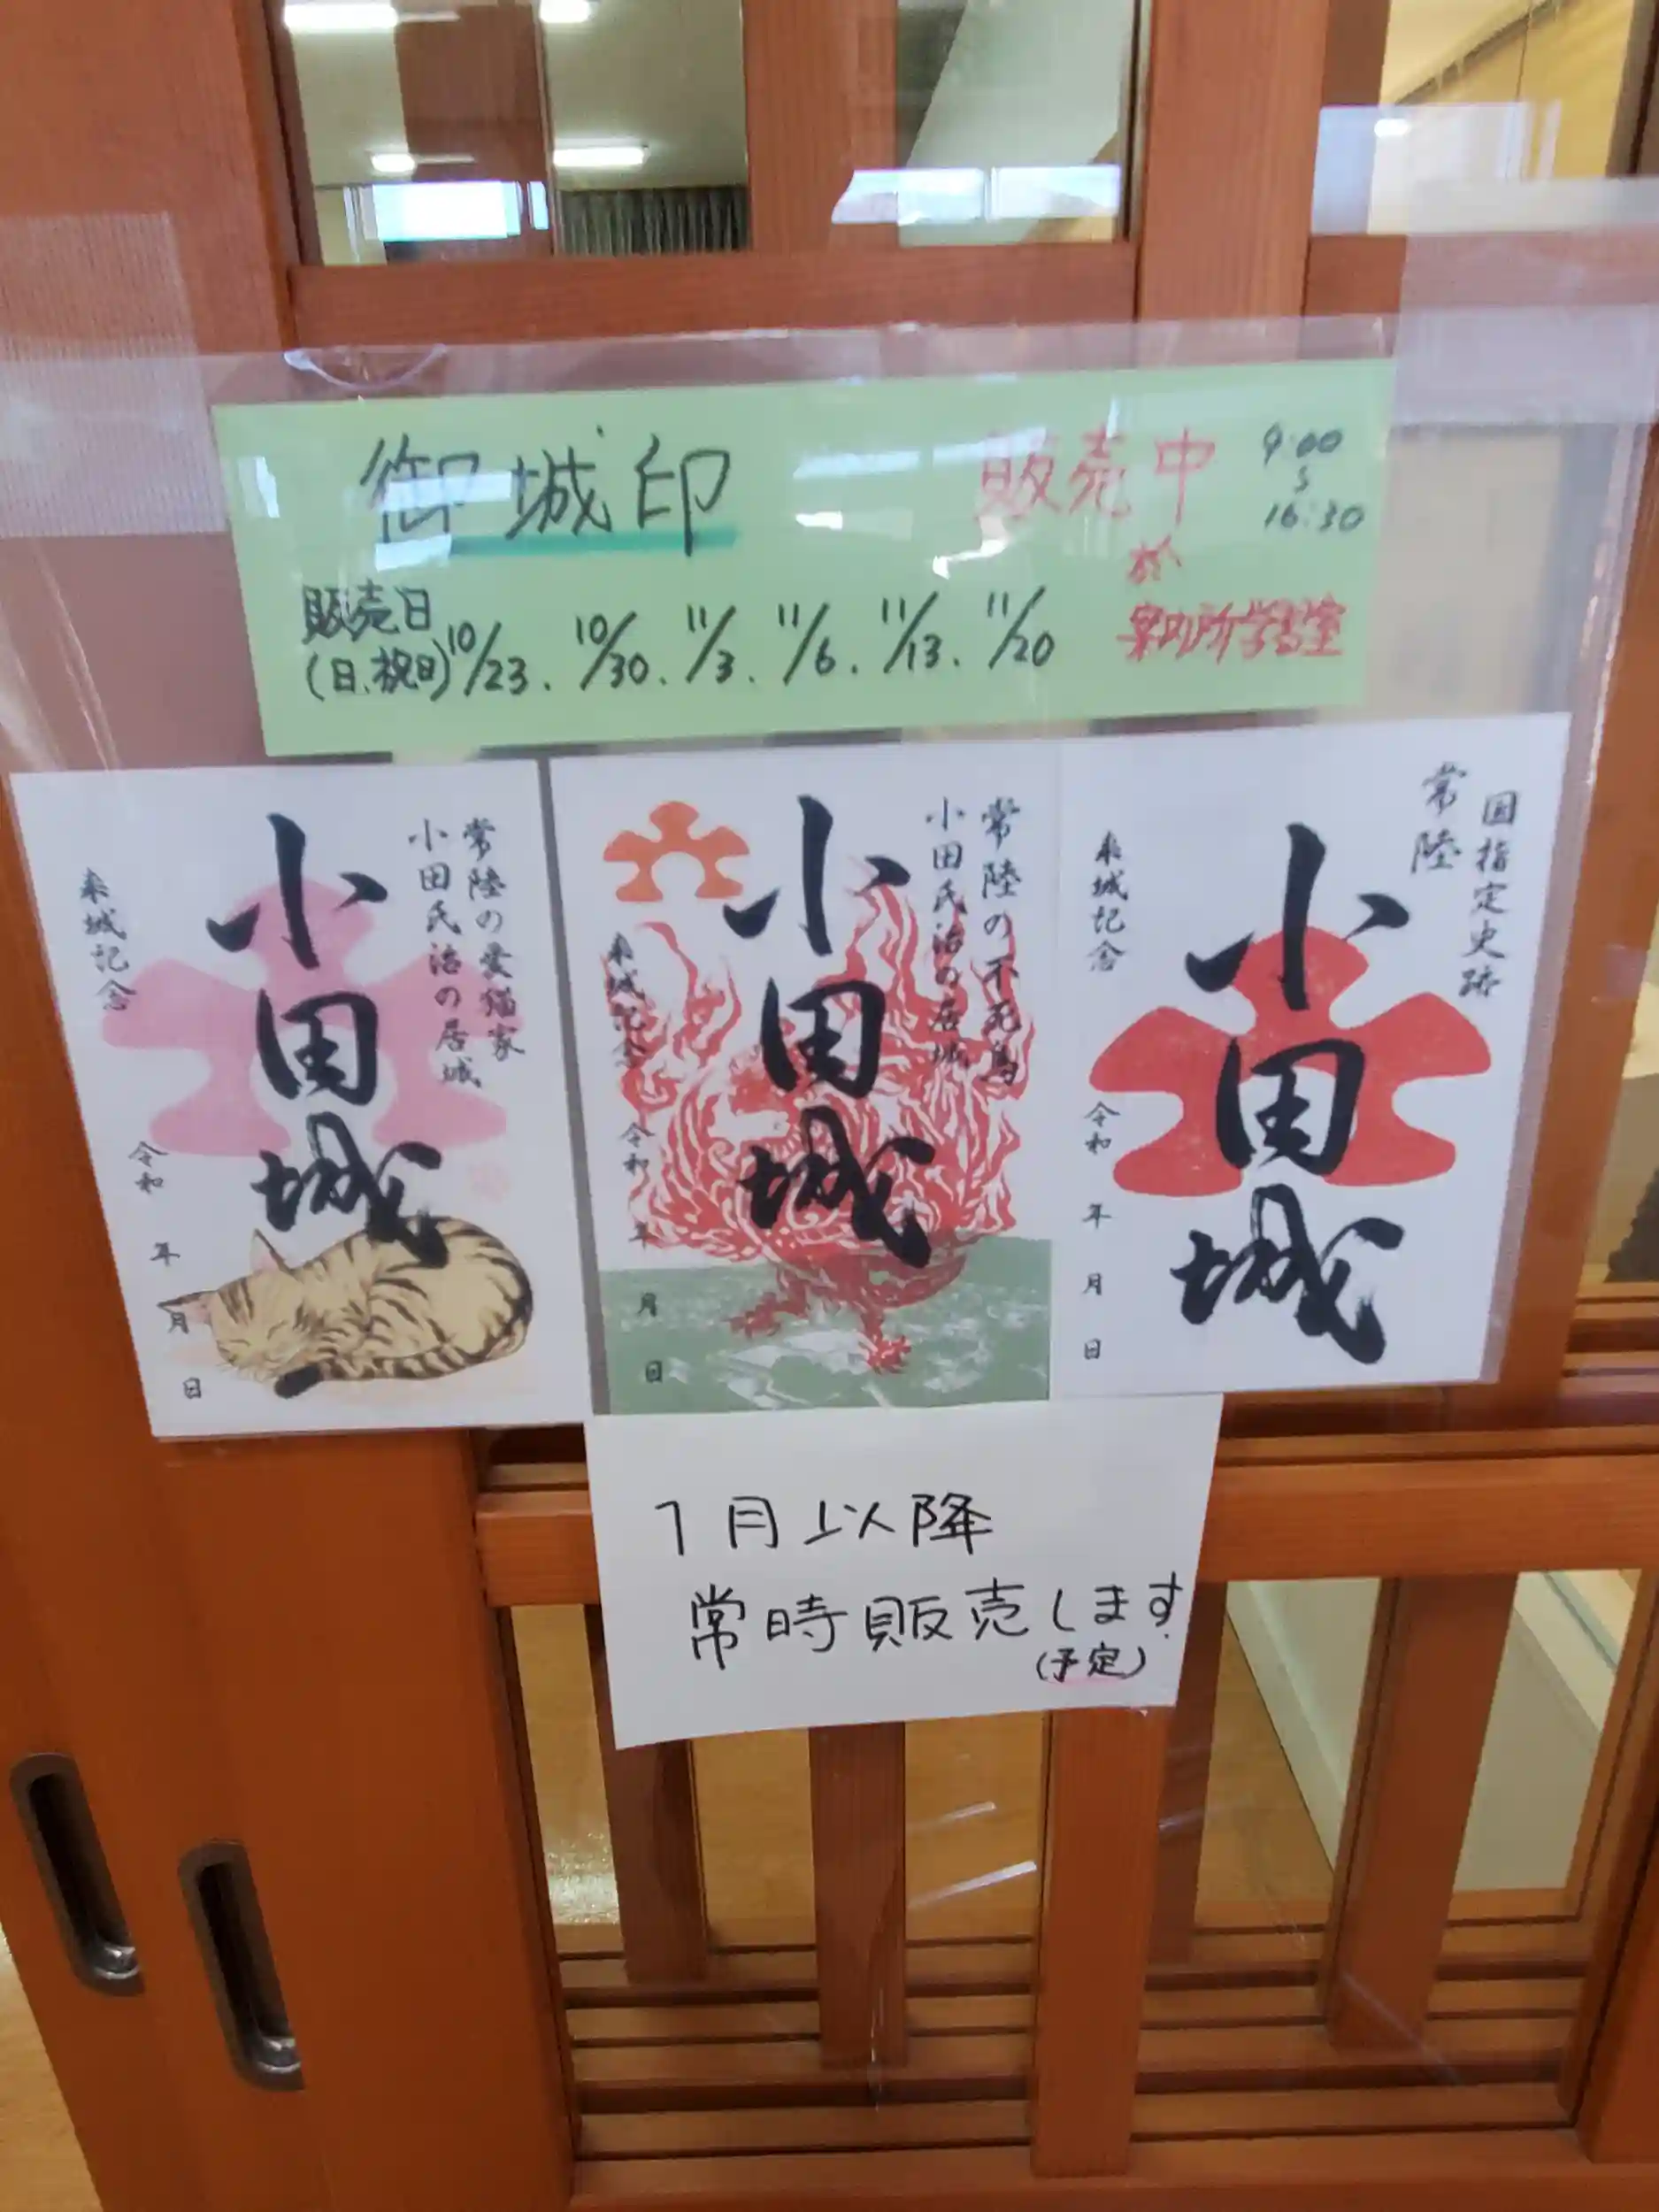 御城印
販売中
9:00
〜
16:30
於
案内所学習室
販売日
(日、祝日)
10/23. 10/30. 11/3. 11/6. 11/13. 11/20
常陸の愛猫家
小田氏治の居城
小田城
来城記念
令和 年 月 日
常陸の不死鳥
小田氏治の居城
小田城
来城記念
令和 年 月 日
国指定史跡
常陸
小田城
来城記念
令和 年 月 日
1月以降
常時販売します
(予定)